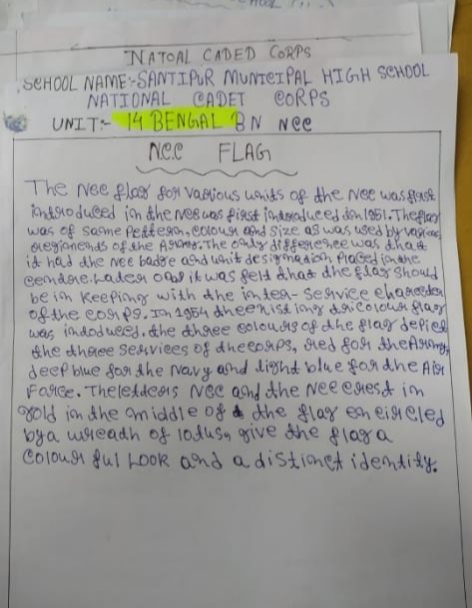 NATOAL CADED CORPS
SCHOOL NAME:-SANTIPUR MUNICIPAL HIGH SCHOOL
NATIONAL CADET CORPS
UNIT:- 14 BENGAL BN NCC
N.C.C FLAG
The Nce flag for various units of the Nce was first
introduced in the Nce was first introduced in 1951. The flag
was of same pettern, colour and size as was used by various
regionends of the Army. The only difference was that
it had the nce badge and unit designation placed in the
centre. Later on it was felt that the flag should
be in keeping with the inter-service charecter
of the corps. In 1954 the existing tricolour flag
was indoduced. the three colours of the flag depict
the three services of the corps, red for the Army,
deep blue for the Navy and light blue for the Air
Farce. The letters NCC and the Nce crest in
gold in the middle of the flag encircled
by a wreadth of lotus, give the flag a
colour ful Look and a distinct identify.